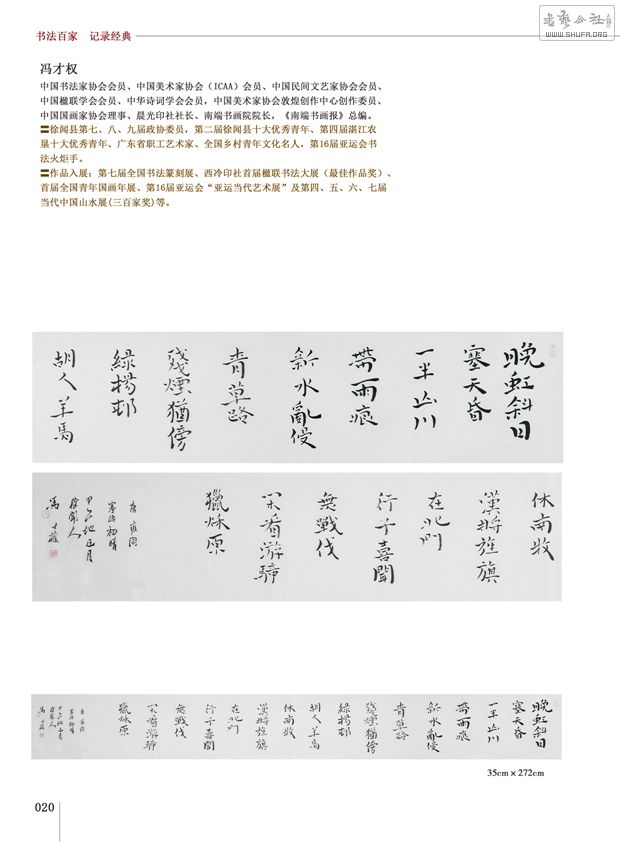 书法公社
WWW.SHUFA.ORG
书法百家 记录经典
冯才权
中国书法家协会会员、中国美术家协会（ICAA）会员、中国民间文艺家协会会员、
中国楹联学会会员、中华诗词学会会员，中国美术家协会敦煌创作中心创作委员、
中国国画家协会理事、晨光印社社长、南端书画院院长，《南端书画报》总编。
〓徐闻县第七、八、九届政协委员，第二届徐闻县十大优秀青年、第四届湛江农
垦十大优秀青年、广东省职工艺术家、全国乡村青年文化名人，第16届亚运会书
法火炬手。
〓作品入展：第七届全国书法篆刻展、西泠印社首届楹联书法大展（最佳作品奖）、
首届全国青年国画年展、第16届亚运会“亚运当代艺术展”及第四、五、六、七届
当代中国山水展(三百家奖)等。
晚虹斜日
塞天昏
一半山川
帶雨痕
新水亂侵
青草路
殘煙猶傍
綠楊邨
胡人羊馬
休南牧
漢將旌旗
在北門
行子喜聞
無戰伐
閑看游騎
獵秌原
唐 雍陶
塞路初晴
正月
徐聞人
馮才權
晚虹斜日
塞天昏
一半山川
帶雨痕
新水亂侵
青草路
殘煙猶傍
綠楊邨
胡人羊馬
休南牧
漢將旌旗
在北門
行子喜聞
無戰伐
閑看游騎
獵秌原
唐 雍陶
塞路初晴
正月
徐聞人
馮才權
35cm×272cm
020